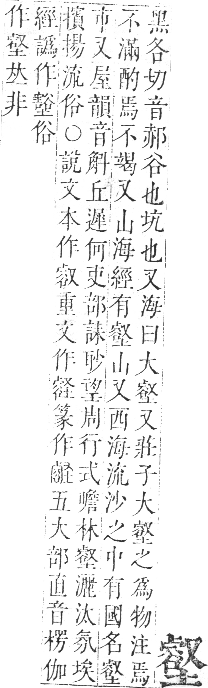 壑
黑各切音郝谷也坑也又海曰大壑又莊子大壑之爲物注焉
不滿酌焉不竭又山海經有壑山又西海流沙之中有國名壑
市又屋韻音斛丘遲何吏部誄眇望周行式瞻林壑灑汰氛埃
擯揚流俗○說文本作叡重文作壑篆作𧯆五大部直音楞伽
經譌作壑俗
作壑𠀤非